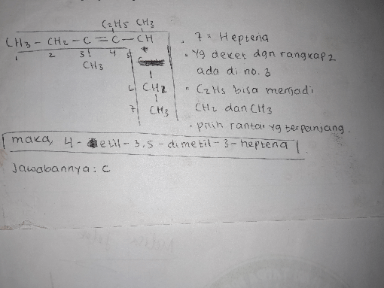 C2H5 CH3
CH3 - CH2 - C = C - CH
1 2 3 4 5
CH3
6 CH2
7 CH3
. 7 = Heptena
. yg deket dgn rangkap 2
ada di no. 3
. C2H5 bisa menjadi
CH2 dan CH3
. pilih rantai yg terpanjang
maka, 4 - etil - 3.5 - dimetil - 3 - heptena
Jawabannya : C